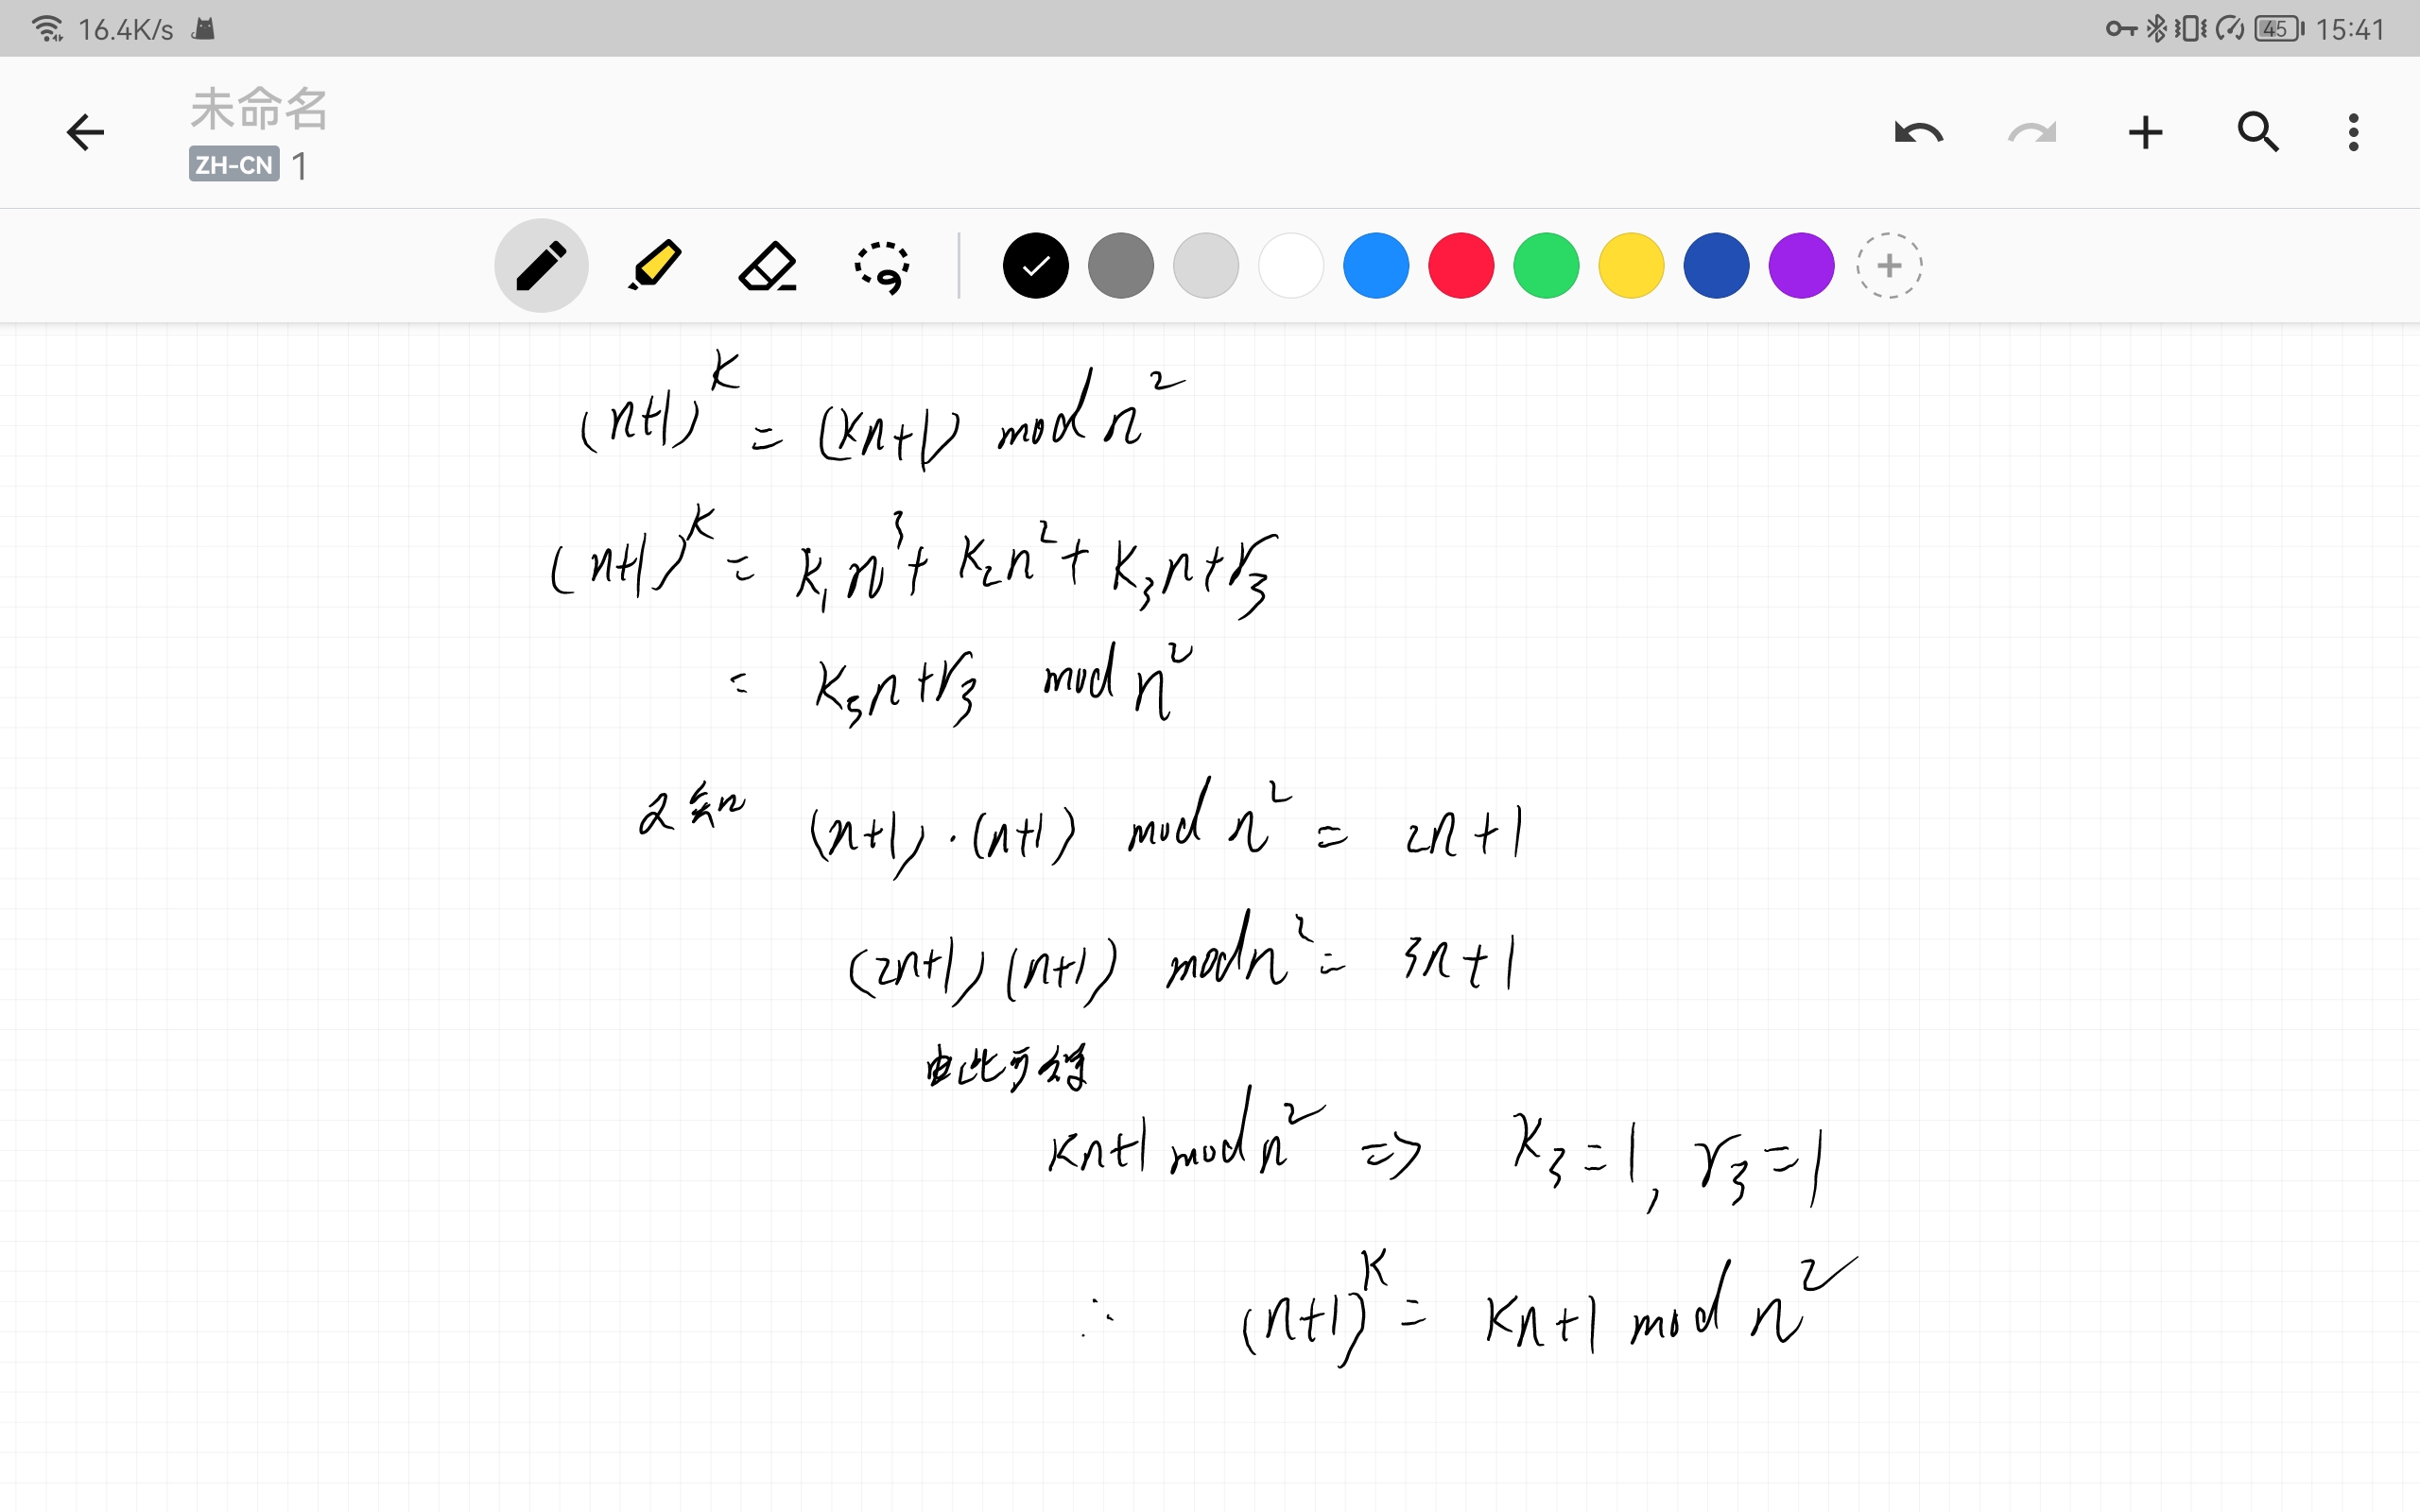 16.4K/s 45 15:41
未命名
ZH-CN 1
(n+1)^K = (Kn+1) mod n^2
(n+1)^K = K_1 n^3 + K_2 n^2 + K_3 n + r_3
= K_3 n + r_3 mod n^2
又知 (n+1)·(n+1) mod n^2 = 2n+1
(2n+1)(n+1) mod n^2 = 3n+1
由此可得
Kn+1 mod n^2 ⇒ K_3=1, r_3=1
∴ (n+1)^K = Kn+1 mod n^2